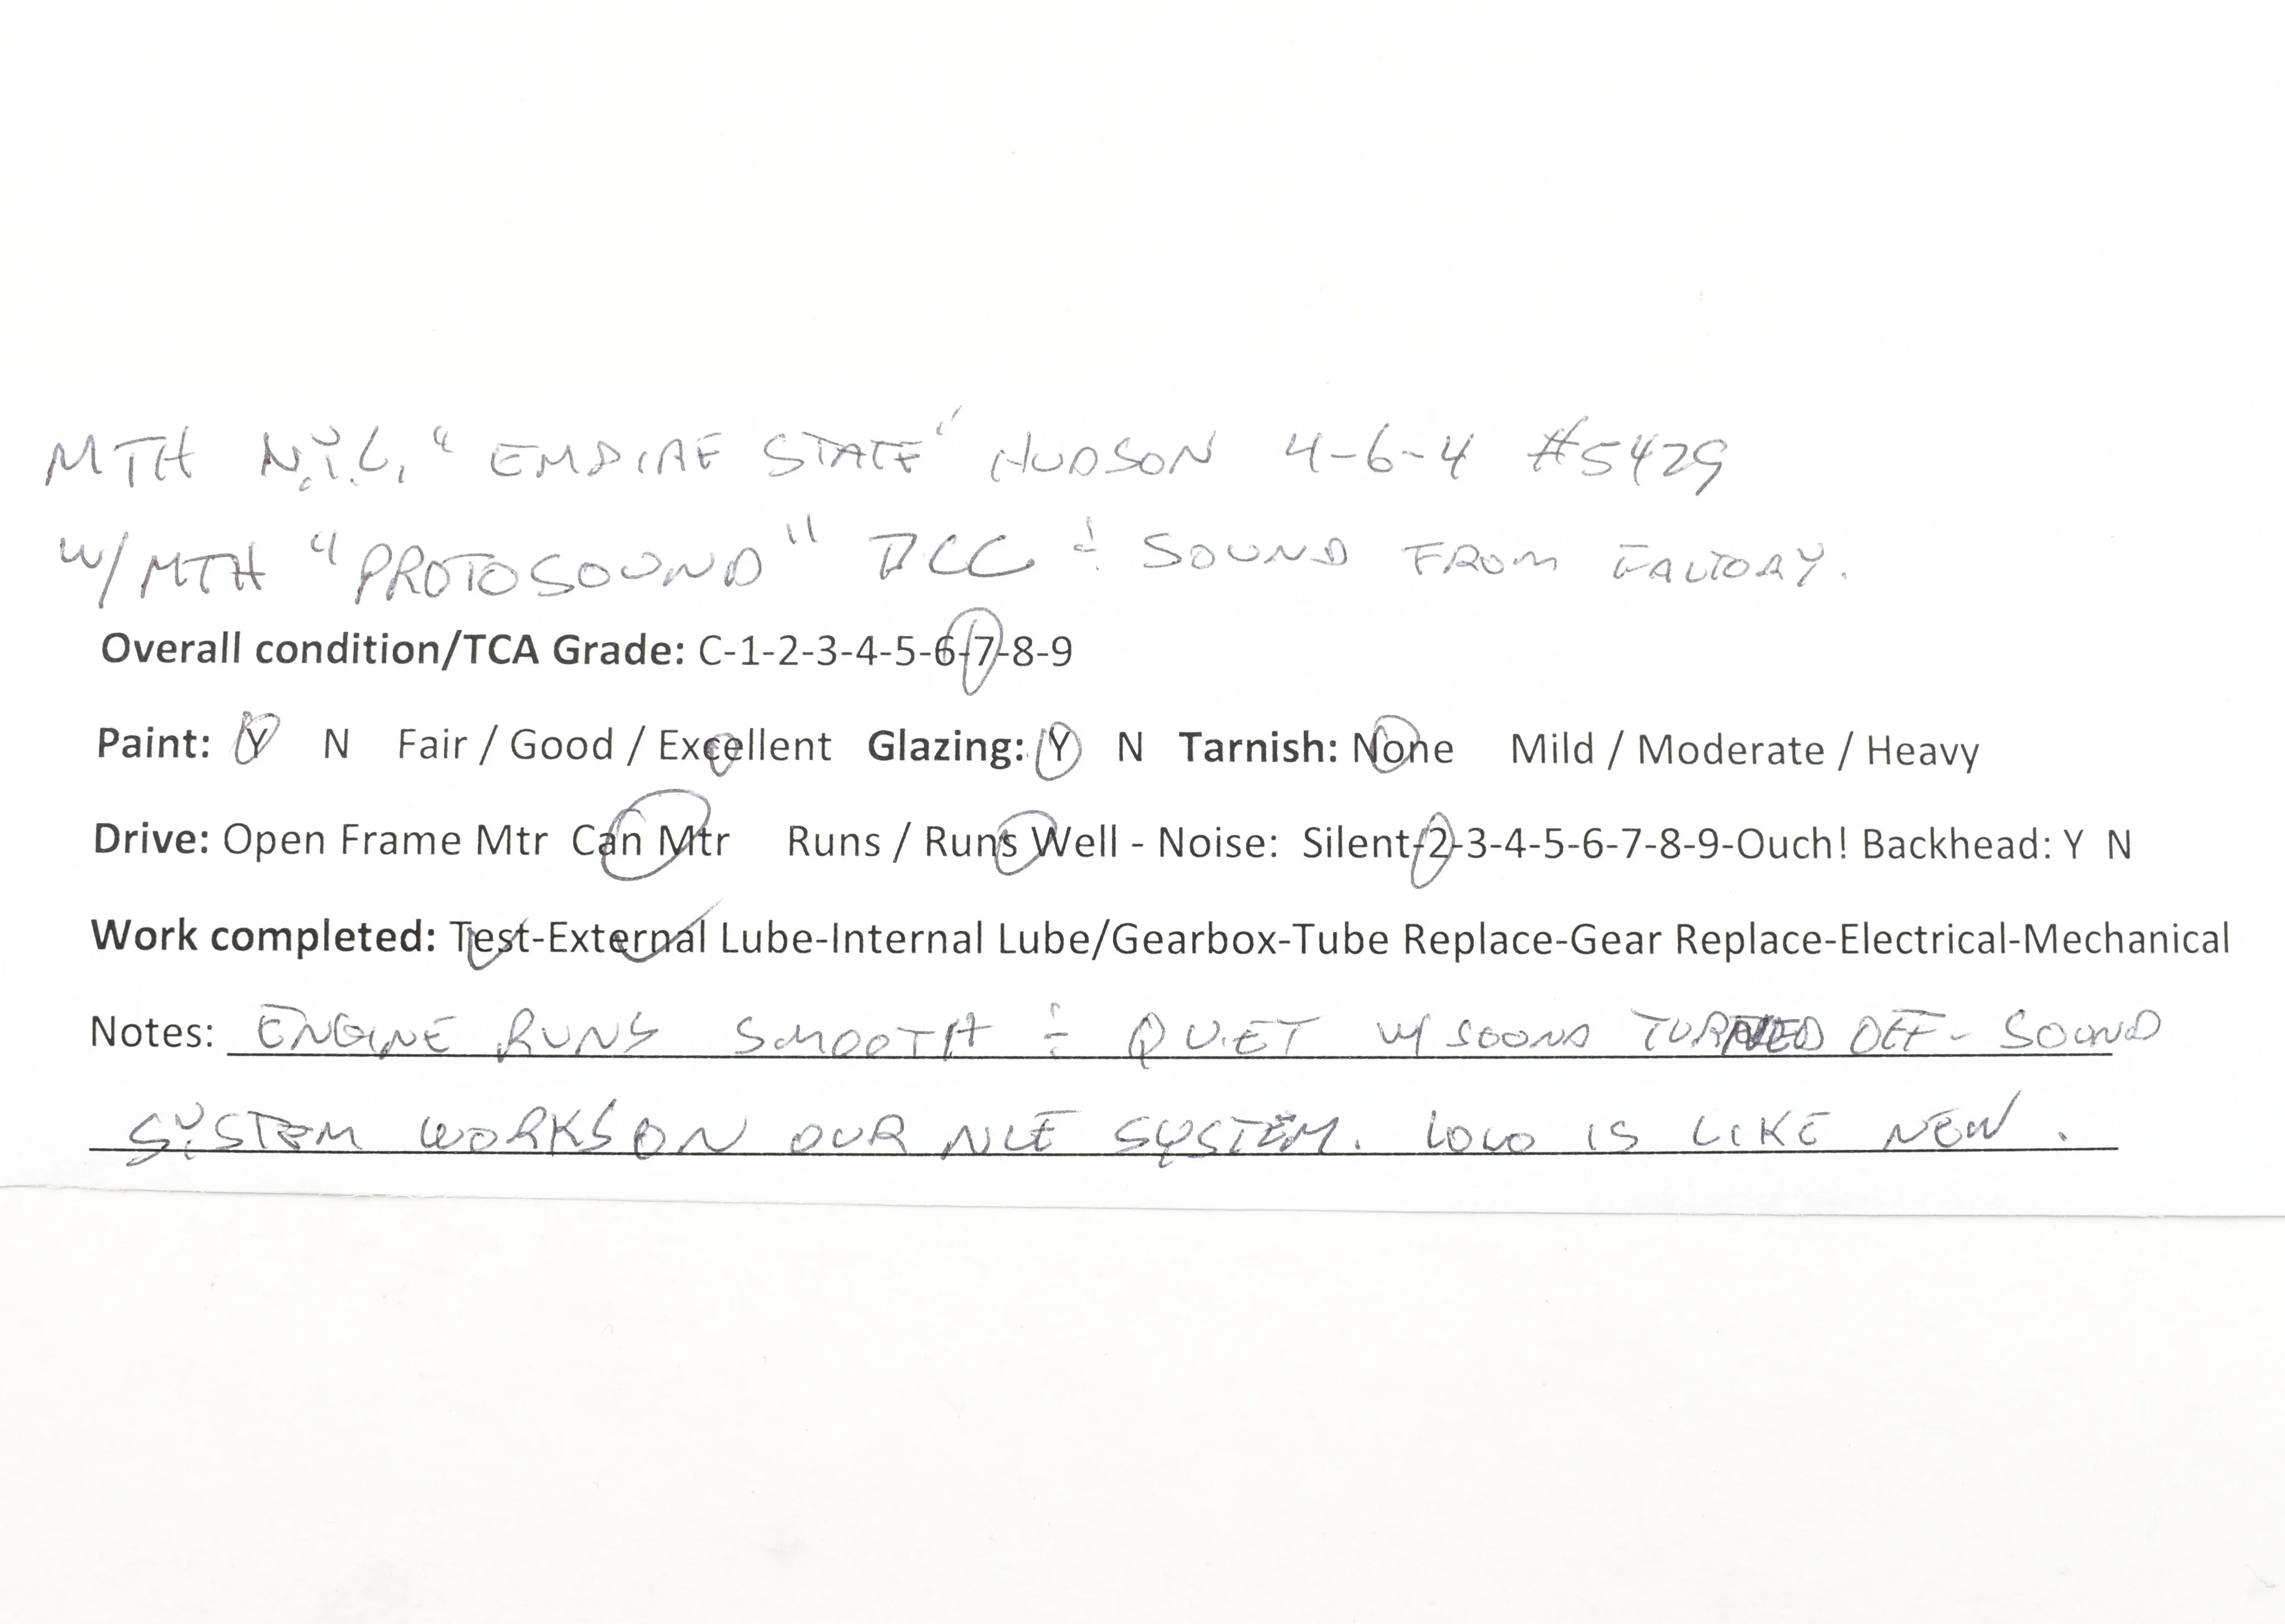 MTH N.Y.C. "EMPIRE STATE" HUDSON 4-6-4 #5429
W/MTH "PROTOSOUND" DCC & SOUND FROM FACTORY.
Overall condition/TCA Grade: C-1-2-3-4-5-6-7-8-9
Paint: Y N Fair / Good / Excellent Glazing: Y N Tarnish: None Mild / Moderate / Heavy
Drive: Open Frame Mtr Can Mtr Runs / Runs Well - Noise: Silent-2-3-4-5-6-7-8-9-Ouch! Backhead: Y N
Work completed: Test-External Lube-Internal Lube/Gearbox-Tube Replace-Gear Replace-Electrical-Mechanical
Notes: ENGINE RUNS SMOOTH & QUIET W/ SOUND TURNED OFF - SOUND
SYSTEM WORKS ON OUR NCE SYSTEM. LOCO IS LIKE NEW.